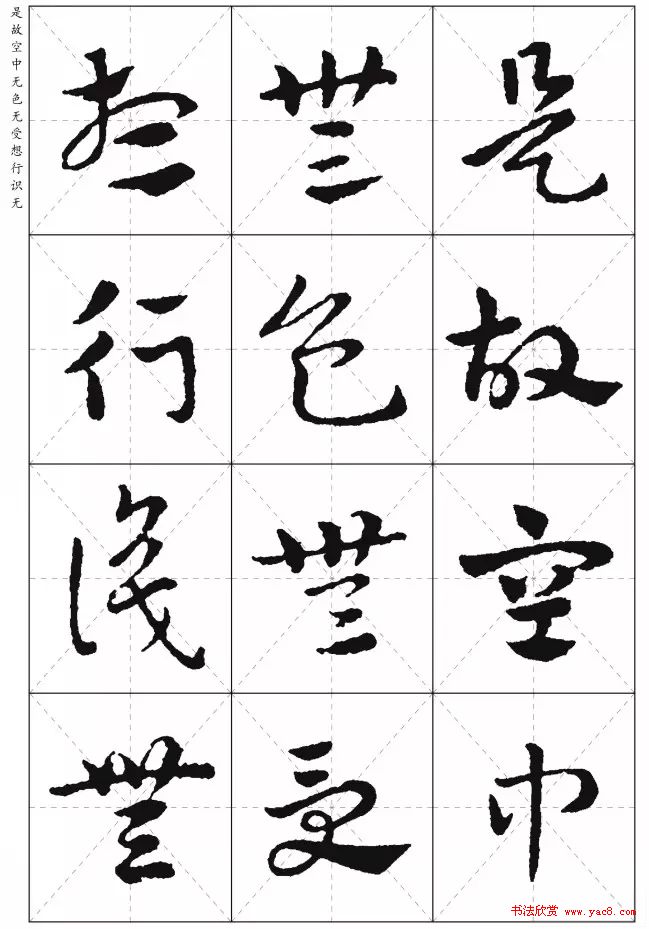 是故空中无色无受想行识无
是故空中
無色無受
想行識無
书法欣赏 www.yac8.com